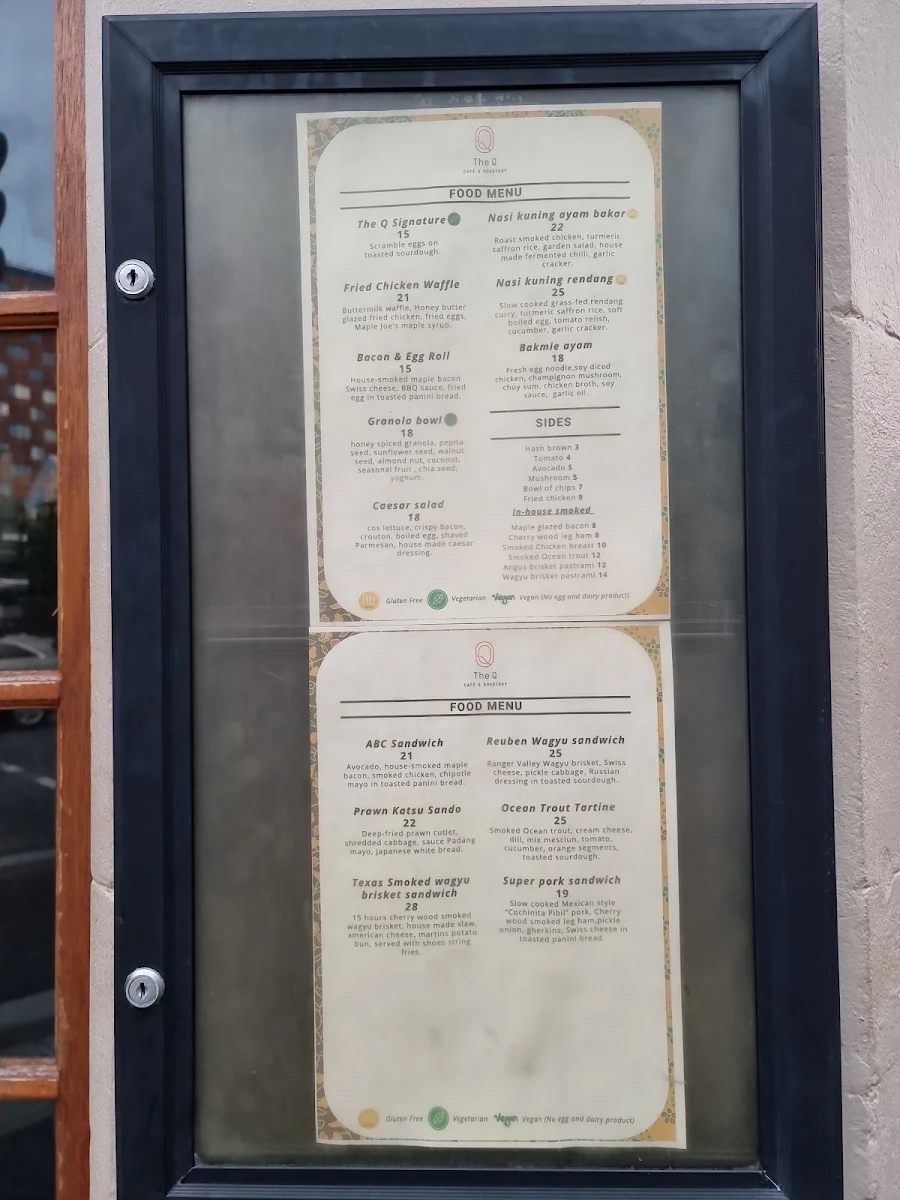 The Q
CAFE & ROASTERY
FOOD MENU
The Q Signature
15
Scramble eggs on
toasted sourdough.
Fried Chicken Waffle
21
Buttermilk waffle, Honey butter
glazed fried chicken, fried eggs,
Maple Joe's maple syrup.
Bacon & Egg Roll
15
House-smoked maple bacon
Swiss cheese, BBQ sauce, fried
egg in toasted panini bread.
Granola bowl
18
honey spiced granola, pepita
seed, sunflower seed, walnut
seed, almond nut, coconut,
seasonal fruit , chia seed,
yoghurt.
Caesar salad
18
cos lettuce, crispy bacon,
crouton, boiled egg, shaved
Parmesan, house made caesar
dressing.
Nasi kuning ayam bakar
22
Roast smoked chicken, turmeric
saffron rice, garden salad, house
made fermented chilli, garlic
cracker.
Nasi kuning rendang
25
Slow cooked grass-fed rendang
curry, turmeric saffron rice, soft
boiled egg, tomato relish,
cucumber, garlic cracker.
Bakmie ayam
18
Fresh egg noodle,soy diced
chicken, champignon mushroom,
choy sum, chicken broth, soy
sauce, garlic oil.
SIDES
Hash brown 3
Tomato 4
Avocado 5
Mushroom 5
Bowl of chips 7
Fried chicken 9
In-house smoked
Maple glazed bacon 8
Cherry wood leg ham 8
Smoked Chicken breast 10
Smoked Ocean trout 12
Angus brisket pastrami 12
Wagyu brisket pastrami 14
Gluten Free Vegetarian Vegan Vegan (No egg and dairy product)
The Q
CAFE & ROASTERY
FOOD MENU
ABC Sandwich
21
Avocado, house-smoked maple
bacon, smoked chicken, chipotle
mayo in toasted panini bread.
Prawn Katsu Sando
22
Deep-fried prawn cutlet,
shredded cabbage, sauce Padang
mayo, japanese white bread.
Texas Smoked wagyu
brisket sandwich
28
15 hours cherry wood smoked
wagyu brisket, house made slaw,
american cheese, martins potato
bun, served with shoes string
fries.
Reuben Wagyu sandwich
25
Ranger Valley Wagyu brisket, Swiss
cheese, pickle cabbage, Russian
dressing in toasted sourdough.
Ocean Trout Tartine
25
Smoked Ocean trout, cream cheese,
dill, mix mesclun, tomato,
cucumber, orange segments,
toasted sourdough.
Super pork sandwich
19
Slow cooked Mexican style
"Cochinita Pibil" pork, Cherry
wood smoked leg ham,pickle
onion, gherkins, Swiss cheese in
toasted panini bread.
Gluten Free Vegetarian Vegan Vegan (No egg and dairy product)